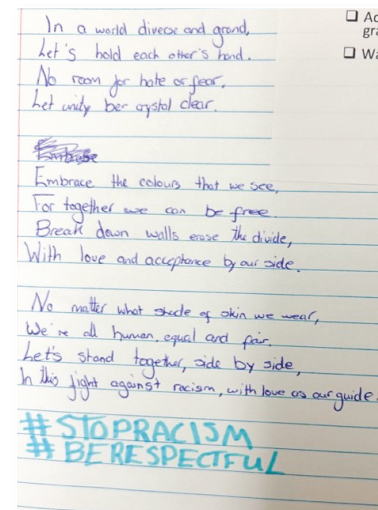 In a world diverse and grand,
Let's hold each other's hand.
No room for hate or fear,
Let unity ber crystal clear.
Embrace the colours that we see,
For together we can be free.
Break down walls erase the divide,
With love and acceptance by our side.
No matter what shade of skin we wear,
We're all human, equal and fair,
Let's stand together, side by side,
In this fight against racism, with love as our guide.
#STOPRACISM
#BERESPECTFUL
Ac
gra
Wa